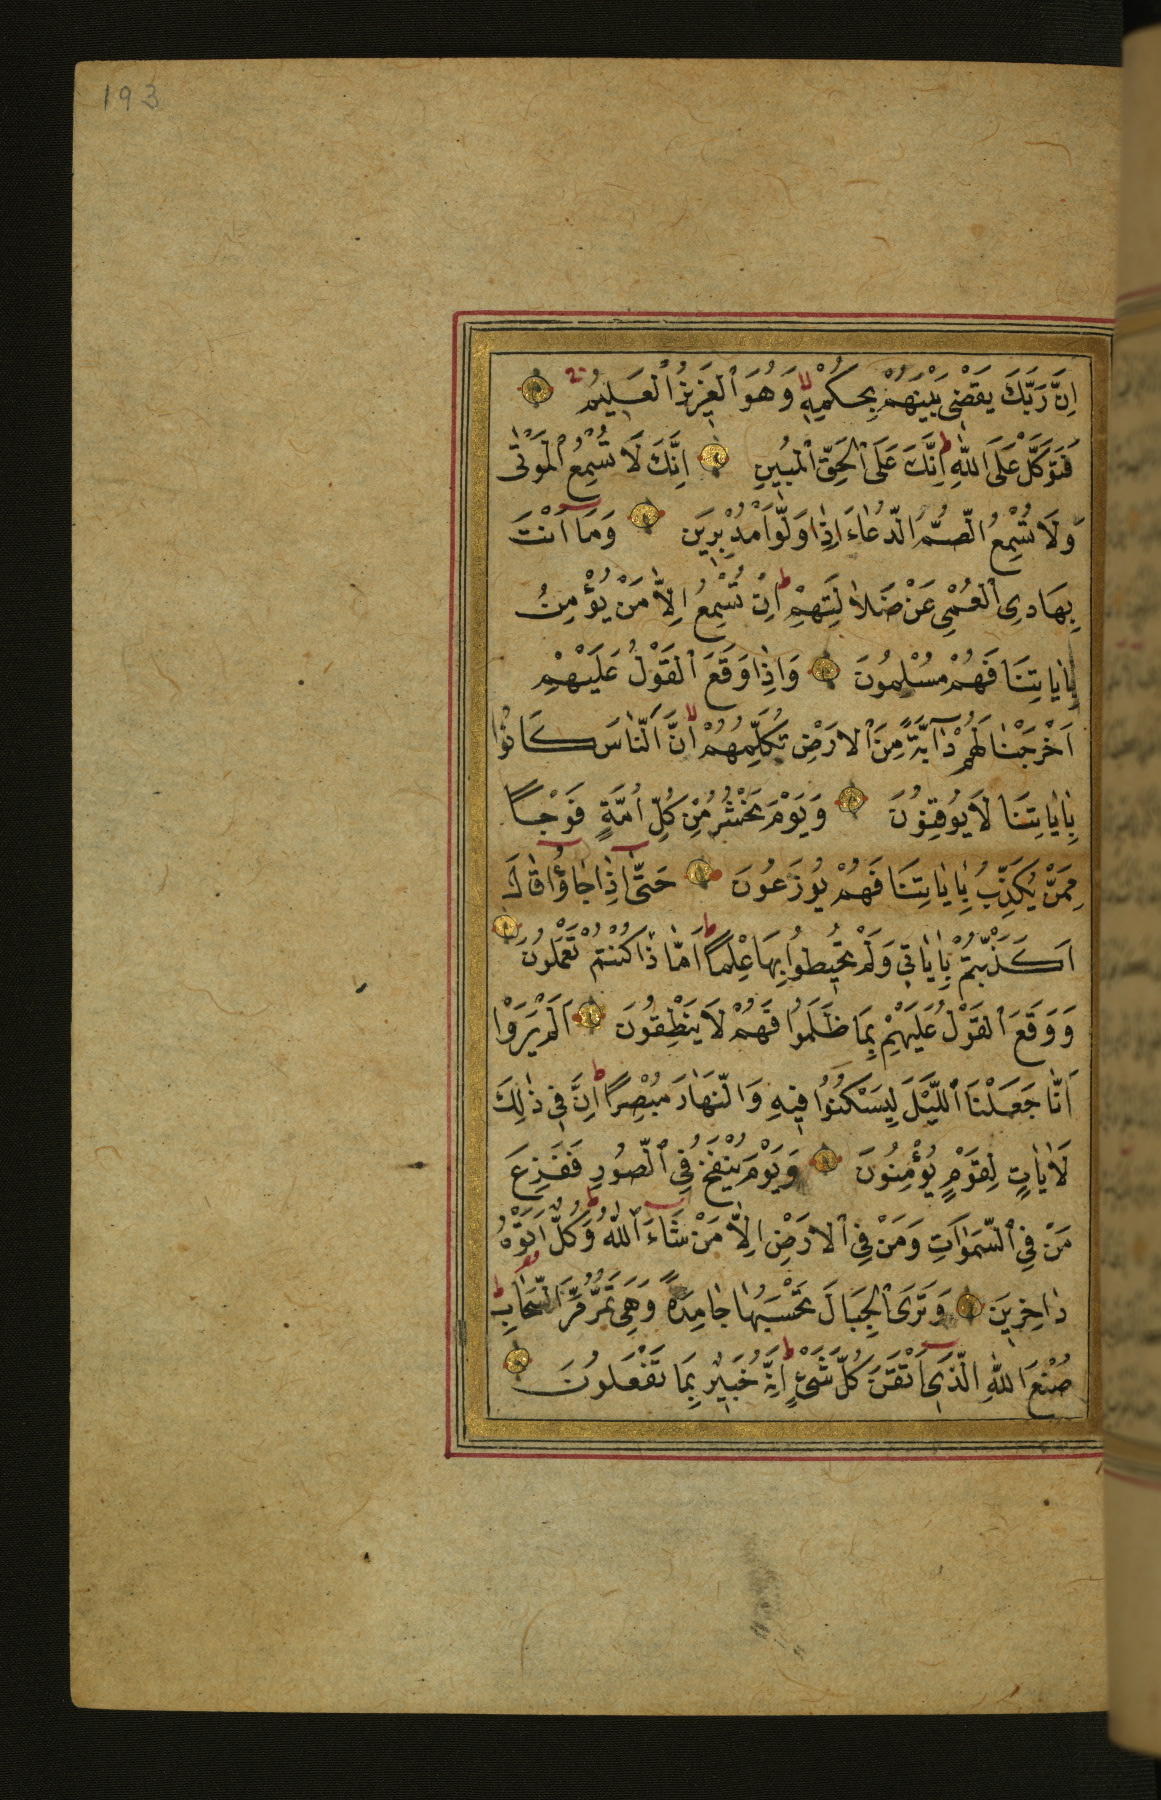 193
اِنَّ رَبَّكَ يَقْضِى بَيْنَهُمْ بِحُكْمِهٖ وَهُوَ ٱلْعَزِيزُ ٱلْعَلِيمُ
فَتَوَكَّلْ عَلَى اللّٰهِ اِنَّكَ عَلَى ٱلْحَقِّ ٱلْمُبِينِ اِنَّكَ لَا تُسْمِعُ ٱلْمَوْتٰى
وَلَا تُسْمِعُ الصُّمَّ الدُّعَاءَ اِذَا وَلَّوْا مُدْبِرِينَ وَمَا اَنْتَ
بِهَادِى ٱلْعُمْىِ عَنْ ضَلَالَتِهِمْ اِنْ تُسْمِعُ اِلَّا مَنْ يُؤْمِنُ
بِاٰيَاتِنَا فَهُمْ مُسْلِمُونَ وَاِذَا وَقَعَ ٱلْقَوْلُ عَلَيْهِمْ
اَخْرَجْنَا لَهُمْ دَآبَّةً مِنَ ٱلْاَرْضِ تُكَلِّمُهُمْ اَنَّ النَّاسَ كَانُوا
بِاٰيَاتِنَا لَا يُوقِنُونَ وَيَوْمَ نَحْشُرُ مِنْ كُلِّ اُمَّةٍ فَوْجًا
مِمَّنْ يُكَذِّبُ بِاٰيَاتِنَا فَهُمْ يُوزَعُونَ حَتّٰى اِذَا جَاؤُا قَالَ
اَكَذَّبْتُمْ بِاٰيَاتِى وَلَمْ تُحِيطُوا بِهَا عِلْمًا اَمَّا ذَا كُنْتُمْ تَعْمَلُونَ
وَوَقَعَ ٱلْقَوْلُ عَلَيْهِمْ بِمَا ظَلَمُوا فَهُمْ لَا يَنْطِقُونَ اَلَمْ يَرَوْا
اَنَّا جَعَلْنَا ٱللَّيْلَ لِيَسْكُنُوا فِيهِ وَالنَّهَارَ مُبْصِرًا اِنَّ فِى ذٰلِكَ
لَاٰيَاتٍ لِقَوْمٍ يُؤْمِنُونَ وَيَوْمَ يُنْفَخُ فِى ٱلصُّورِ فَفَزِعَ
مَنْ فِى ٱلسَّمٰوَاتِ وَمَنْ فِى ٱلْاَرْضِ اِلَّا مَنْ شَاءَ ٱللّٰهُ وَكُلٌّ اَتَوْهُ
دَاخِرِينَ وَتَرَى ٱلْجِبَالَ تَحْسَبُهَا جَامِدَةً وَهِىَ تَمُرُّ مَرَّ السَّحَابِ
صُنْعَ اللّٰهِ الَّذِى اَتْقَنَ كُلَّ شَىْءٍ اِنَّهُ خَبِيرٌ بِمَا تَفْعَلُونَ